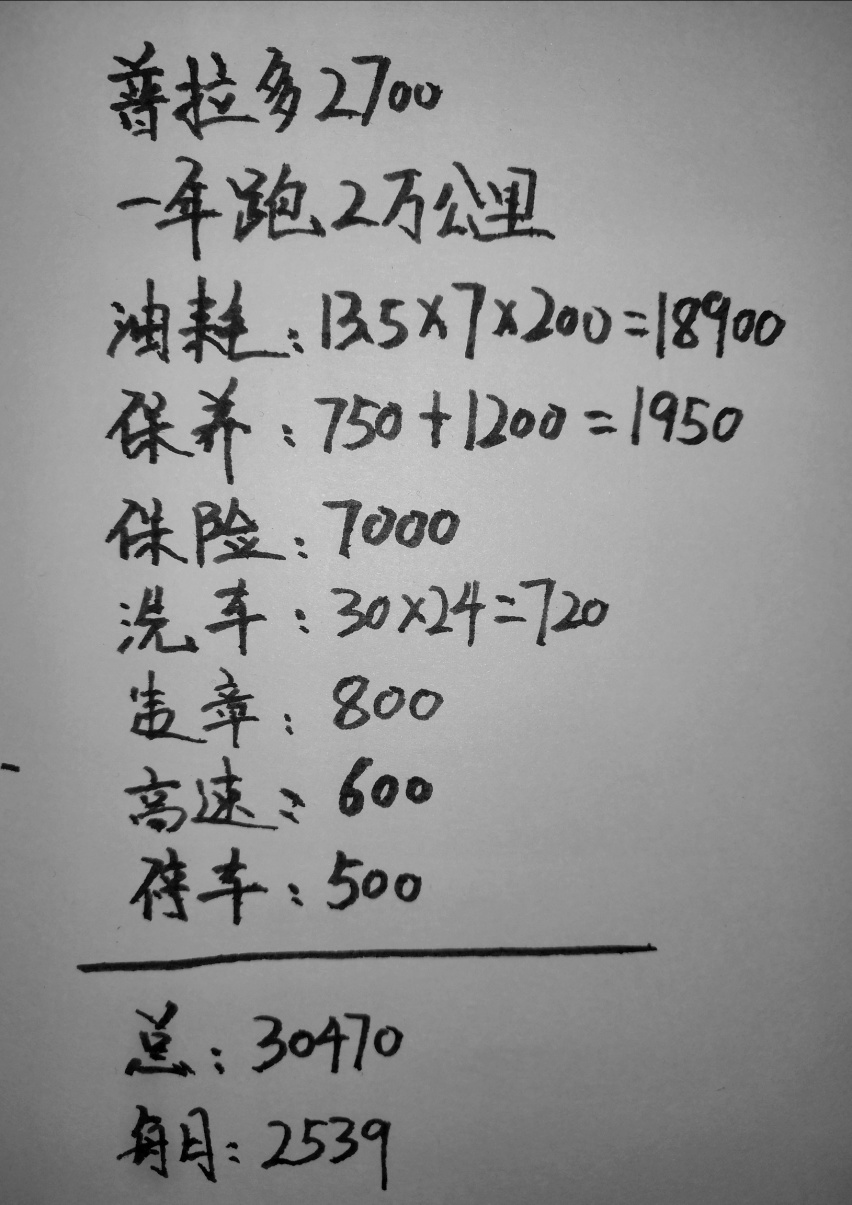 普拉多2700
一年跑2万公里
油耗：13.5×7×200=18900
保养：750+1200=1950
保险：7000
洗车：30×24=720
违章：800
高速：600
停车：500
总：30470
每月：2539